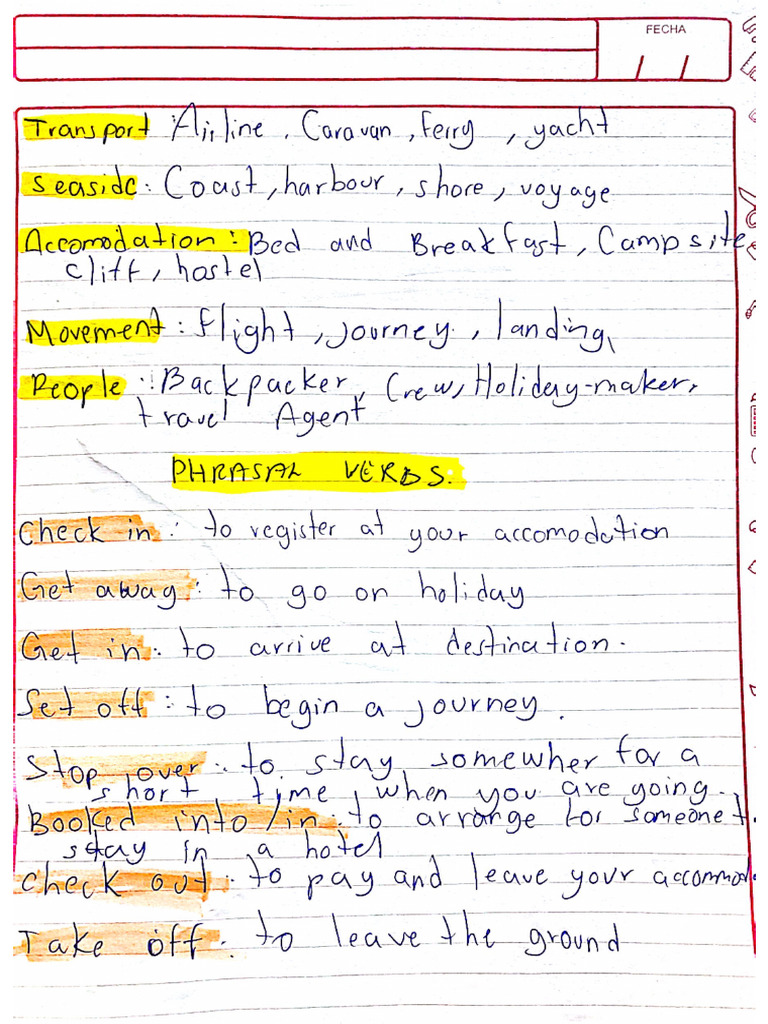 FECHA
/ /
Transport : Airline, Caravan, ferry, yacht
Seaside : Coast, harbour, shore, voyage
Accomodation : Bed and Breakfast, Campsite
cliff, hostel
Movement : flight, journey, landing,
People : Backpacker, Crew, Holiday-maker,
travel Agent
PHRASAL VERBS:
Check in : to register at your accomodation
Get away : to go on holiday
Get in : to arrive at destination.
Set off : to begin a journey.
Stop over : to stay somewher for a
short time, when you are going.
Booked into/in : to arrange for someone t
stay in a hotel
check out : to pay and leave your accommod
Take off : to leave the ground